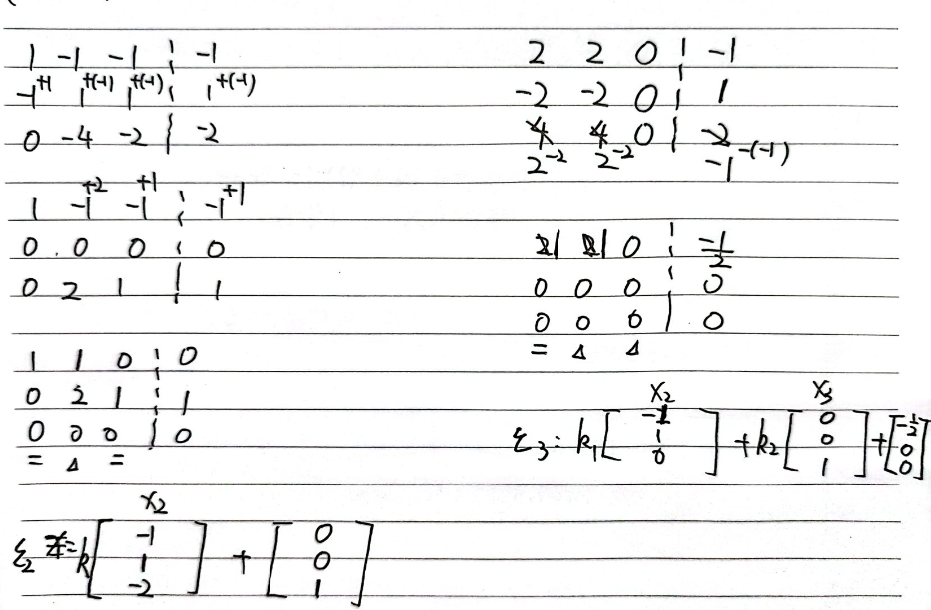 1 -1 -1 ¦ -1
-1^{+1} 1^{+(-1)} 1^{+(-1)} ¦ 1^{+(-1)}
0 -4 -2 ¦ -2
1 -1^{+2} -1^{+1} ¦ -1^{+1}
0 0 0 ¦ 0
0 2 1 ¦ 1
1 1 0 ¦ 0
0 2 1 ¦ 1
0 0 0 ¦ 0
= Δ =
x2
ξ2 = k [-1 1 -2] + [0 0 1]
2 2 0 ¦ -1
-2 -2 0 ¦ 1
4 4 0 ¦ -2
2^{-2} 2^{-2} -1^{-(-1)}
1 1 0 ¦ -1/2
0 0 0 ¦ 0
0 0 0 ¦ 0
= Δ Δ
x2 x3
ξ3: k1 [-1 1 0] + k2 [0 0 1] + [-1/2 0 0]